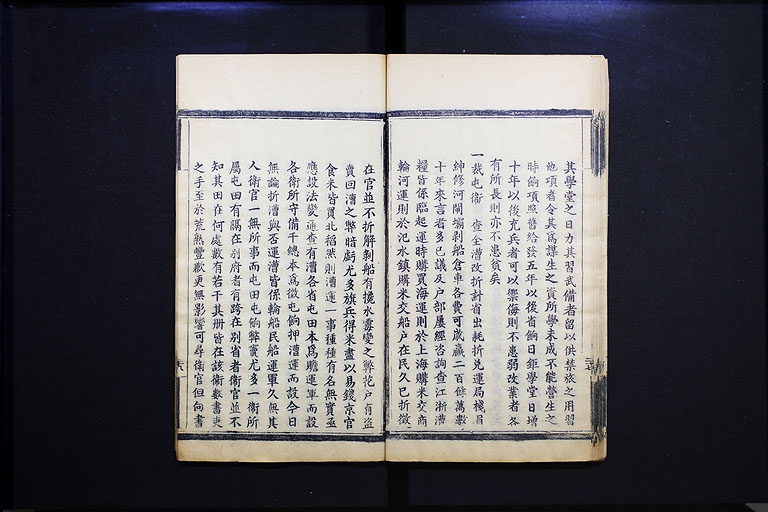 其學堂之日力其習武備者留以供禁旅之用習
他項者令其爲謀生之資所學未成不能營生之
時餉項照舊給發五年以後省餉日鉅學堂日增
十年以後充兵者可以禦侮則不患弱改業者各
有所長則亦不患貧矣
一裁屯衛 查全漕改折計省出耗折兌運局棧員
紳修河閘壩剥船倉車各費可歲贏二百餘萬數
十年來言者多已議及戶部屢經咨詢查江浙漕
糧皆係臨起運時購買海運則於上海購米交商
輪河運則於氾水鎮購米交船戶在民久已折徵
在官並不折解剥船有攙水霉變之弊花戶有盜
賣回漕之弊暗虧尤多旗兵得米盡以易錢京官
食米皆買北稻然則漕運一事種種有名無實亟
應設法變通查有漕各省屯田本爲贍運軍而設
各衛所守備千總本爲徵屯餉押漕運而設今日
無論折漕與否運漕皆係輪船民船運軍久無其
人衛官一無所事而屯田屯餉弊竇尤多一衛所
屬屯田有隔在別府者有跨在別省者衛官並不
知其田在何處數有若干其册皆在該衛數書吏
之手至於荒熟豐歉更無影響可尋衛官但向書